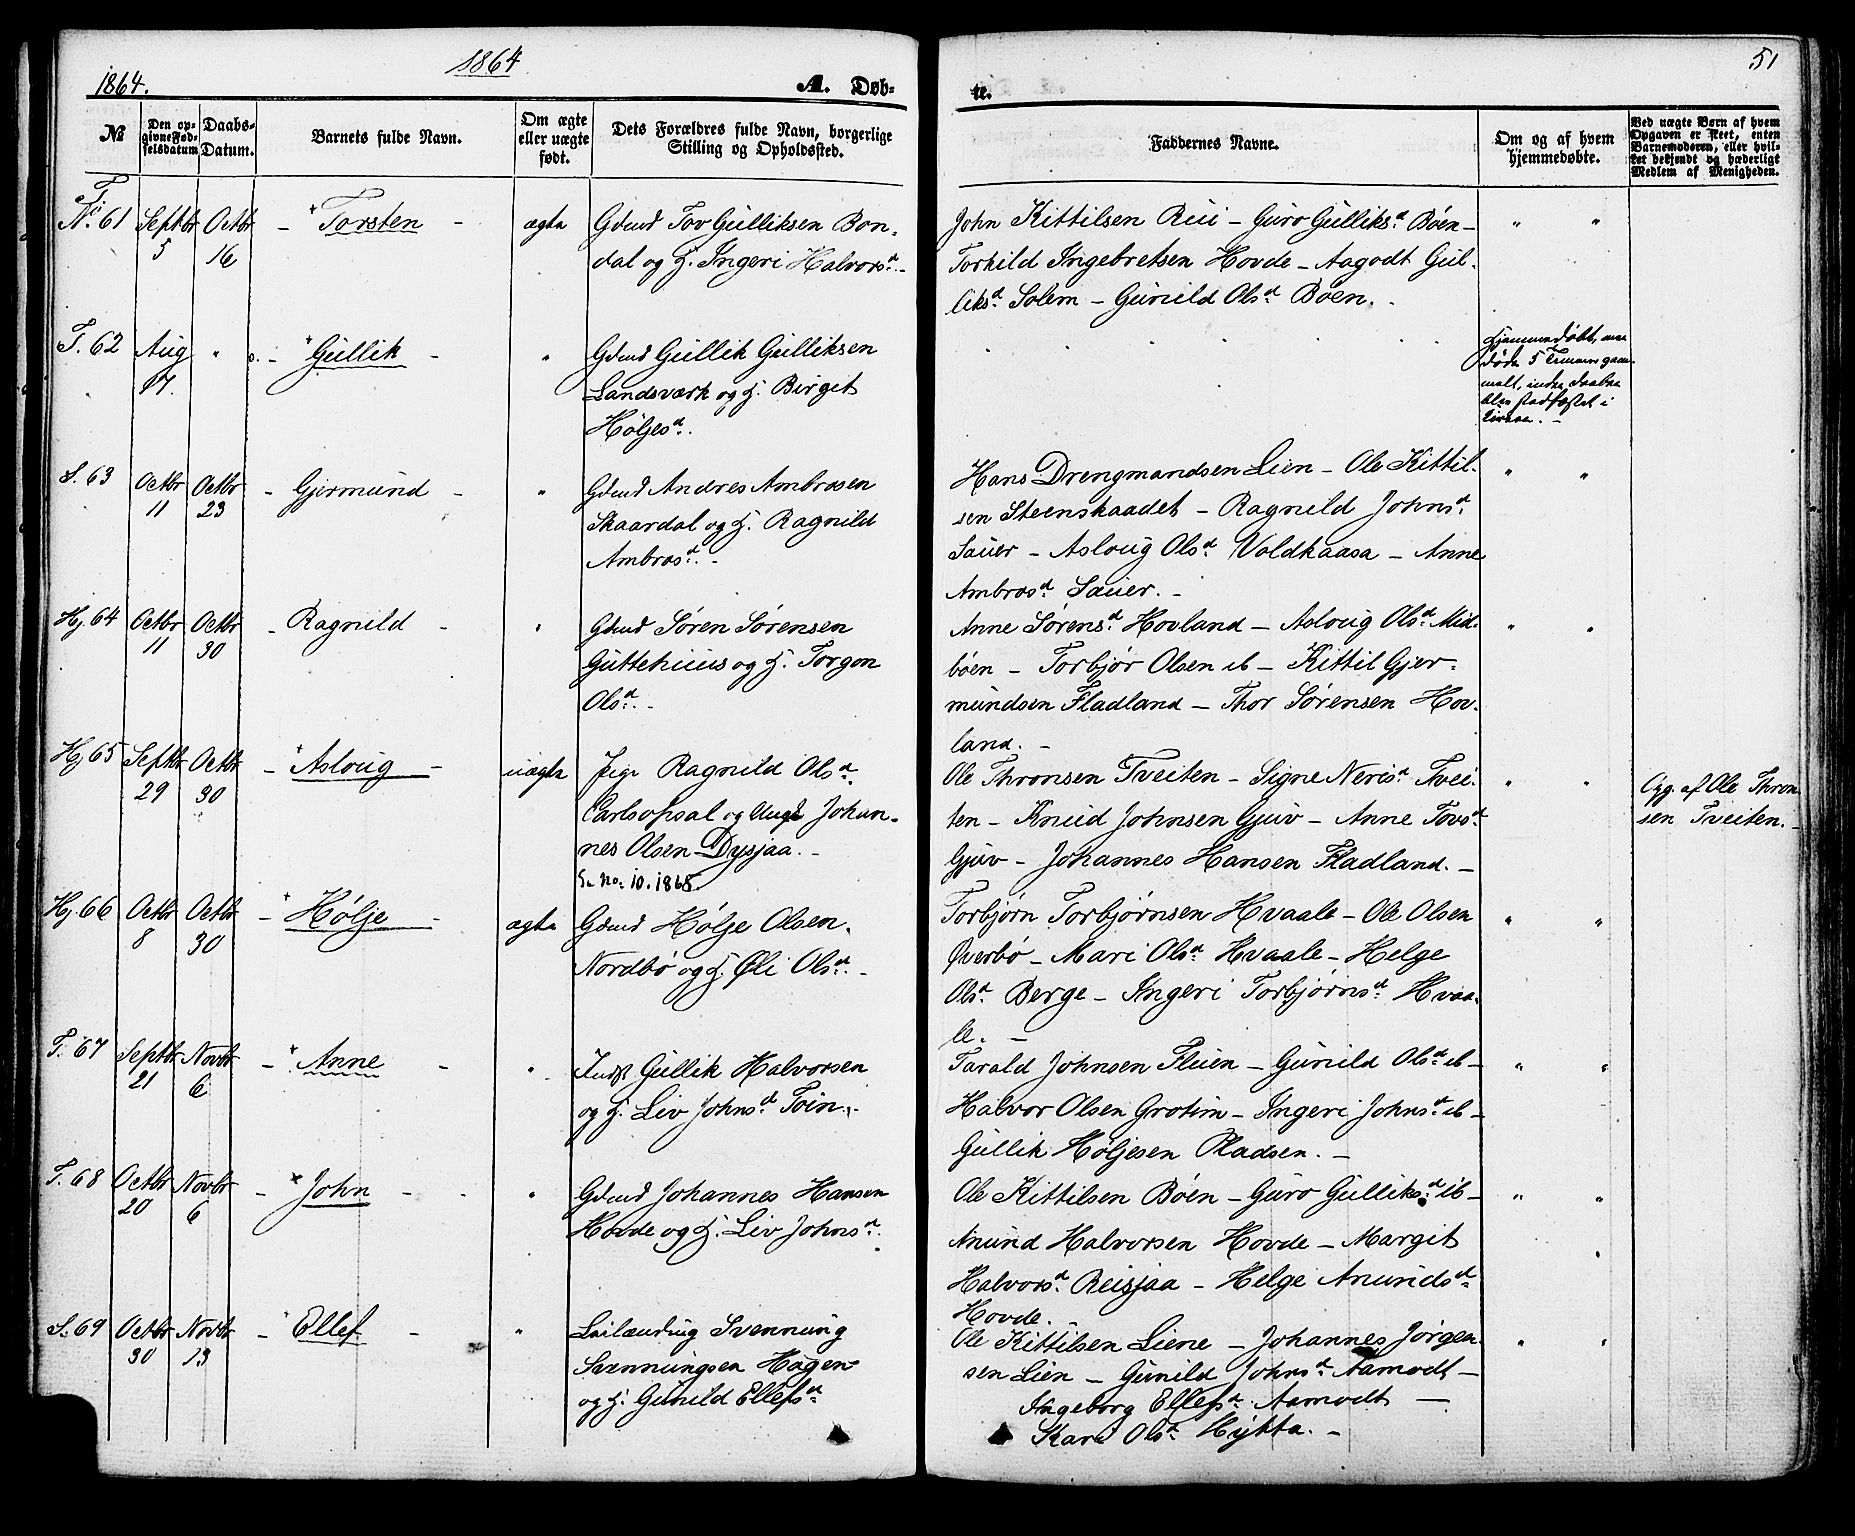 1864.
1864
A. Døb-
te.
51
№
Den op-
givne Fød-
selsdatum
Daabs-
Datum.
Barnets fulde Navn.
Om ægte
eller uægte
født.
Dets Forældres fulde Navn, borgerlige
Stilling og Opholdssted.
Faddernes Navne.
Om og af hvem
hjemmedøbte.
Ved uægte Børn af hvem
Opgaven er skeet, enten
Barnemoderen, eller hvil-
ket bekjendt og hæderligt
Medlem af Menigheden.
T.
N. 61 Septbr 5 Octbr 16 - Torsten - ægte
Gdmd Tov Gulliksen Bon-
dal og H. Ingeri Halvorsd. -
John Kittilsen Rui - Guro Gulliksd. Böen -
Torkild Ingebretsen Hovde - Aagodt Gul-
liksd. Solem - Gunild Olsd. Böen. -
" "
T. 62 Aug 17. " - Gullik - "
Gdmd Gullik Gulliksen
Landsværk og H. Birgit
Höljesd.
Hjemmedöbt, men
döde 5 Timer gam-
malt, inden Daaben
blev stadfæstet i
Kirken. -
S. 63 Octbr 11 Octbr 23 - Gjermund - "
Gdmd Andres Ambrosen
Skaardal og H. Ragnild
Ambrosd. -
Hans Drengmandsen Lien - Ole Kittil-
sen Steenskaadet - Ragnild Johnsd.
Sauer - Asloug Olsd. Voldkaasa - Anne
Ambrosd. Sauer. -
" "
Hj. 64 Octbr 11 Octbr 30 - Ragnild - "
Gdmd Søren Sørensen
Guttehuus og H. Torgon
Olsd. -
Anne Sørensd. Hovland - Asloug Olsd. Mid-
böen - Torbjør Olsen ib - Kittil Gjer-
mundsen Fladland - Thor Sørensen Hov-
land. -
" "
Hj. 65 Septbr 29 Octbr 30 - Asloug - uægte
Pige Ragnild Olsd.
Carlsopsal og Ungk Johan-
nes Olsen Dysjaa. -
Se No: 10. 1868.
Ole Thronsen Tveiten - Signe Nerisd. Tvei-
ten - Knud Johnsen Gjuv - Anne Tovsd.
Gjuv - Johannes Hansen Fladland. -
" "
Opg. af Ole Thron-
sen Tveiten. -
Hj. 66 Octbr 8 Octbr 30 - Hølje - ægte
Gdmd Hølje Olsen
Nordbø og H. Øli Olsd. -
Torbjørn Torbjørnsen Hvaale - Ole Olsen
Øverbø - Mari Olsd. Hvaale - Helge
Olsd. Berge - Ingeri Torbjørnsd. Hvaa-
le. -
" "
T. 67 Septbr 21 Novbr 6 - Anne - "
Indst Gullik Halvorsen
og H. Liv Johnsd. Toin. -
Tarald Johnsen Fluen - Gunild Olsd. ib -
Halvor Olsen Grotim - Ingeri Johnsd. ib -
Gullik Höljesen Pladsen. -
" "
T. 68 Octbr 20 Novbr 6 - John - "
Gdmd Johannes Hansen
Hovde og H. Liv Johnsd.
Ole Kittilsen Böen - Guro Gulliksd. ib -
Anund Halvorsen Hovde - Margit
Halvorsd. Reisjaa - Helge Anundsd.
Hovde. -
" "
S. 69 Octbr 30 Novbr 13 - Ellef - "
Leilænding Svennung
Svennungsen Hagen
og H. Gunild Ellefsd.
Ole Kittilsen Liene - Johannes Jörgen-
sen Lien - Gunild Johnsd. Aamodt -
Ingeborg Ellefsd. Aamodt -
Kari Olsd. Hytta. -
" "